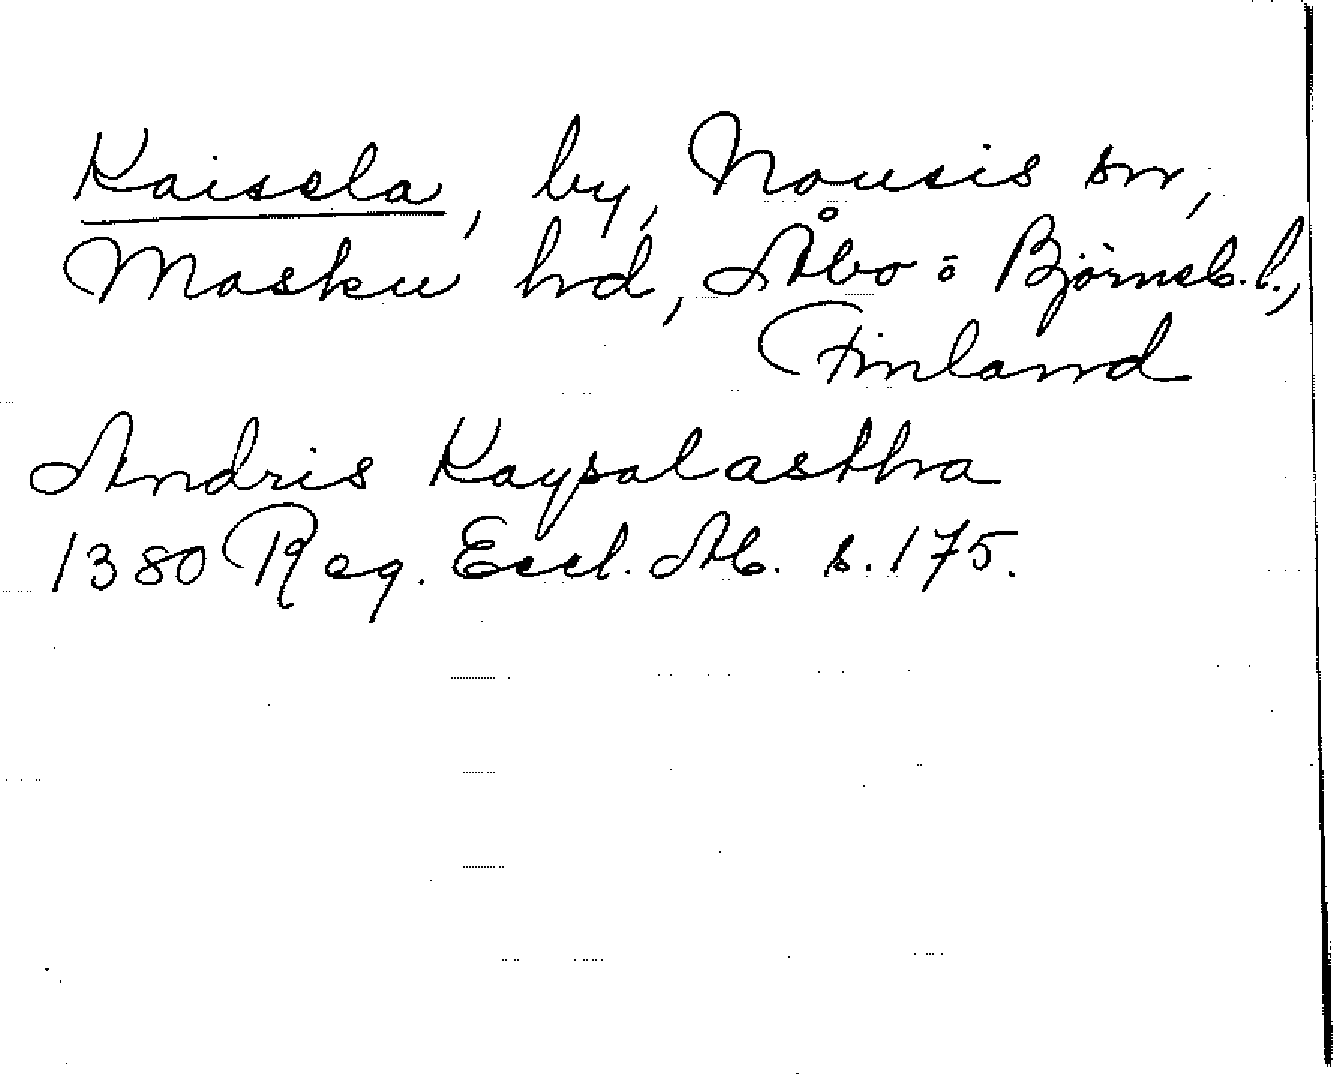 Kaisela, by, Nousis sn,
Masku hd, Åbo o Björneb. l.,
Finland
Andris Kaypalastha
1380 Reg. Eccl. Ab. s. 175.